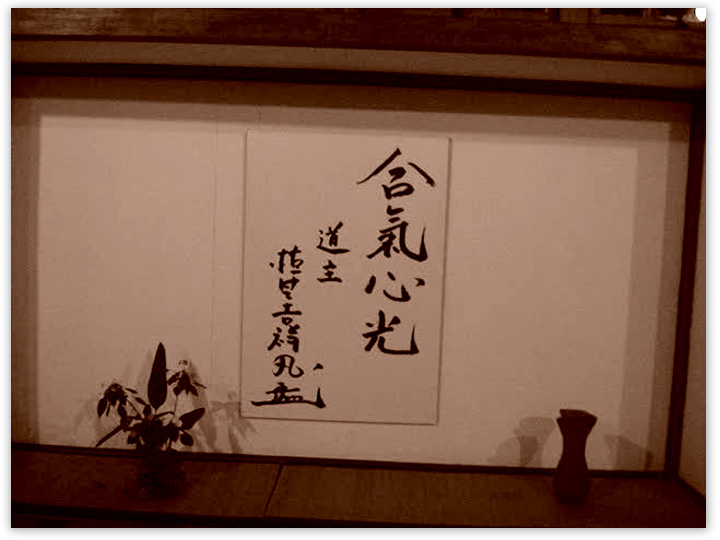 合氣心光
道主
植芝吉祥丸